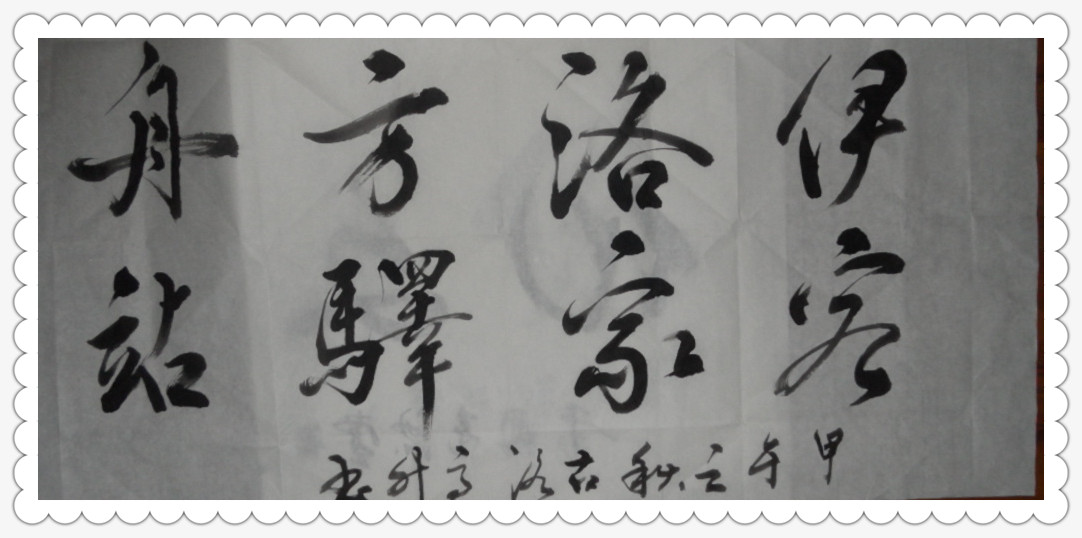 伊洛方舟
客家驛站
甲午之秋古洛高升书